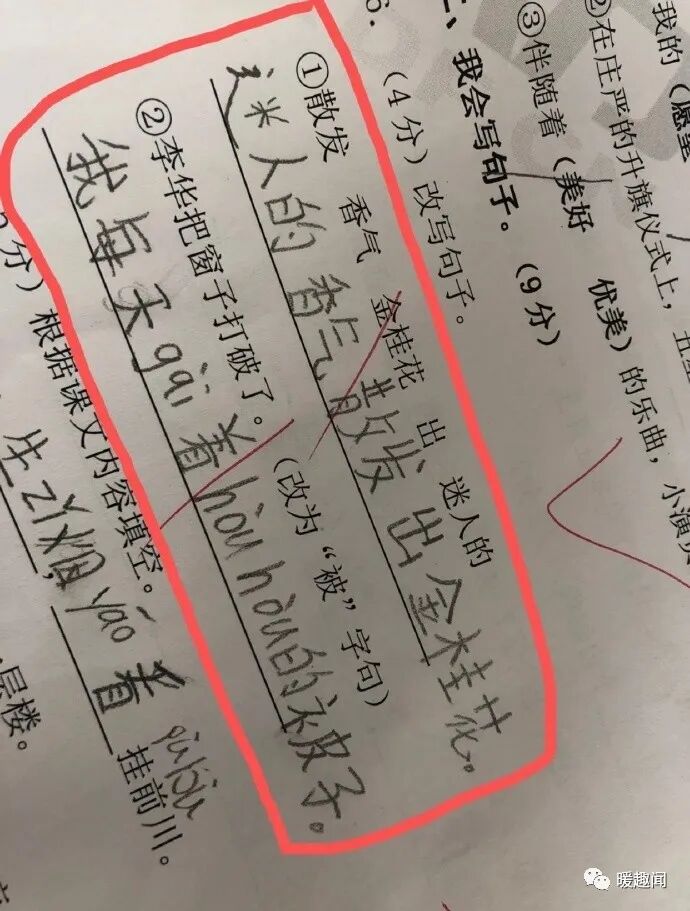 我的（愿望
②在庄严的升旗仪式上，五星
③伴随着（美好 优美）的乐曲，小演员
二、我会写句子。（9分）
6.（4分）改写句子。
①散发 香气 金桂花 出 迷人的
迷人的香气散发出金桂花。
②李华把窗子打破了。（改为“被”字句）
我每天gài着hòuhòu的被子。
分）根据课文内容填空。
生zǐ烟，yáo看
挂前川。
层楼。
暖趣闻